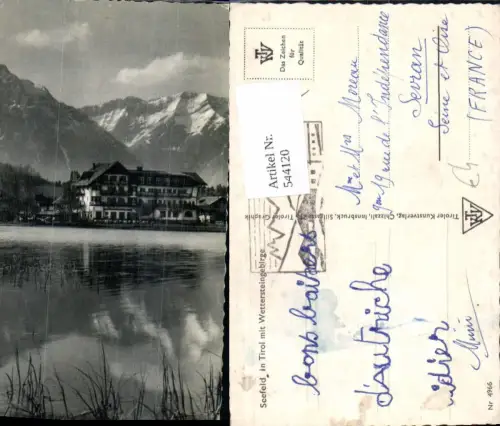 TKV
Das Zeichen
für
Qualität
Artikel Nr.
544120
bons baisers
d'autriche
didier
Mimi
Mr et Mme Moreau
19 rue de l'Indépendance
Sevran
Seine et Oise
(FRANCE)
Tiroler Kunstverlag, Chizzali, Innsbruck,
Tiroler Graphik
TKV
Seefeld in Tirol mit Wettersteingebirge
Nr 4966